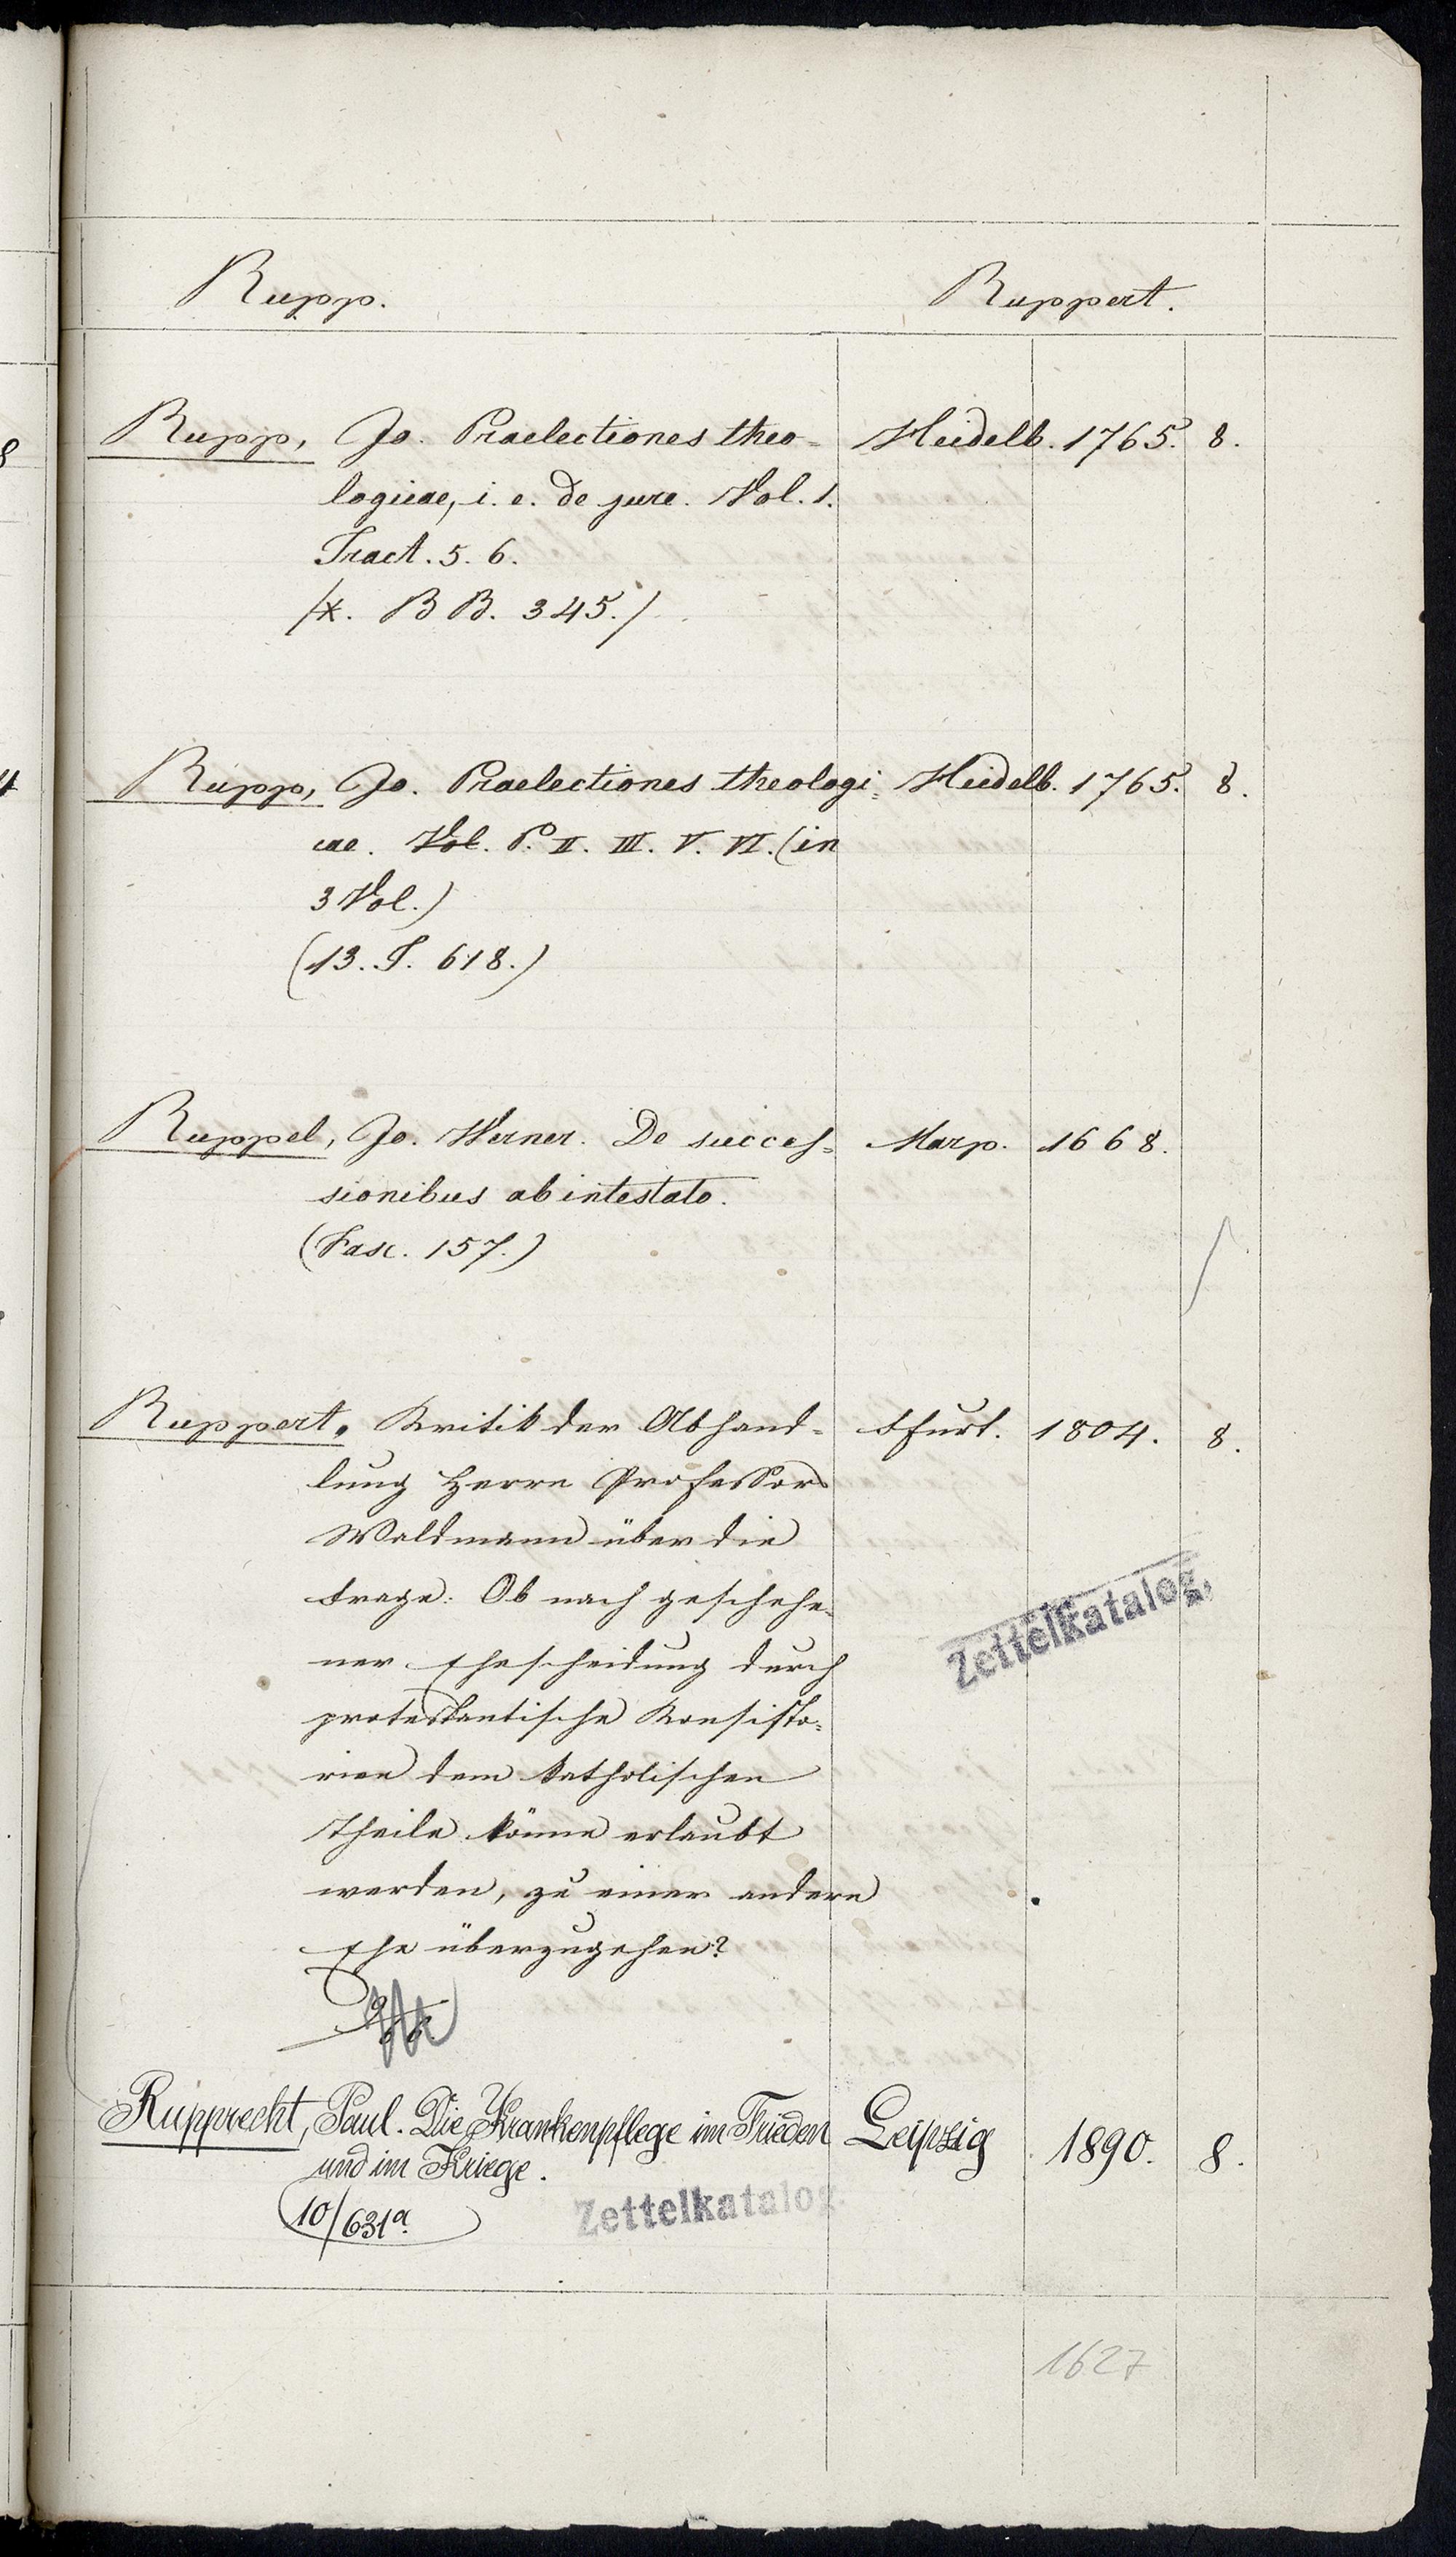 Rupp. Ruppert.
Rupp, Jo. Praelectiones theo- Heidelb. 1765. 8.
logicae, i. e. de jure. Vol. 1.
Tract. 5. 6.
/X. BB. 345./
Rupp, Jo. Praelectiones theologi- Heidelb. 1765. 8.
cae. Vol. P. II. III. V. VI. (in
3 Vol.)
(13. S. 618.)
Ruppel, Jo. Werner. De succes- Marp. 1668.
sionibus ab intestato.
(Fasc. 157.)
Ruppert. Kritik der Abhand- Efurt. 1804. 8.
lung Herrn Professors
Waldmann über die
Frage: Ob nach geschehe-
ner Ehescheidung durch
protestantische Konsisto-
rien dem katholischen
Theile könne erlaubt
werden, zu einer andern
Ehe überzugehen?
Zettelkatalog.
Rupprecht, Paul. Die Krankenpflege im Frieden Leipzig 1890. 8.
und im Kriege.
10/631a.
Zettelkatalog.
1627